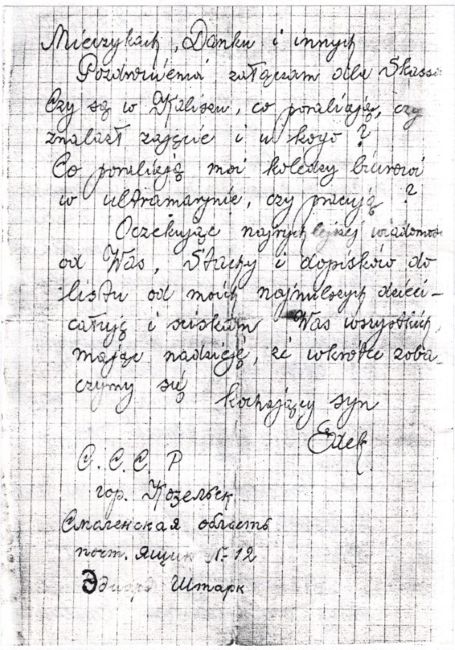 Mieczykach, Danku i innych
Pozdrowienia załączam dla Skassa
Czy są w Kaliszu, co porabiają, czy
znalazł zajęcie i u kogo?
Co porabiają moi koledzy biurowi
w ultramarynie, czy pracują?
Oczekując najrychlejszej wiadomoś
od Was, Stachy i dopisków do
listu od moich najmilszych dzieci-
całuję i ściskam Was wszystkich,
mając nadzieję, że wkrótce zoba-
czymy się
kochający syn
Edek
С.С.С Р
гор. Козельск
Смоленская область
почт. ящик № 12
Эдуард Штарк